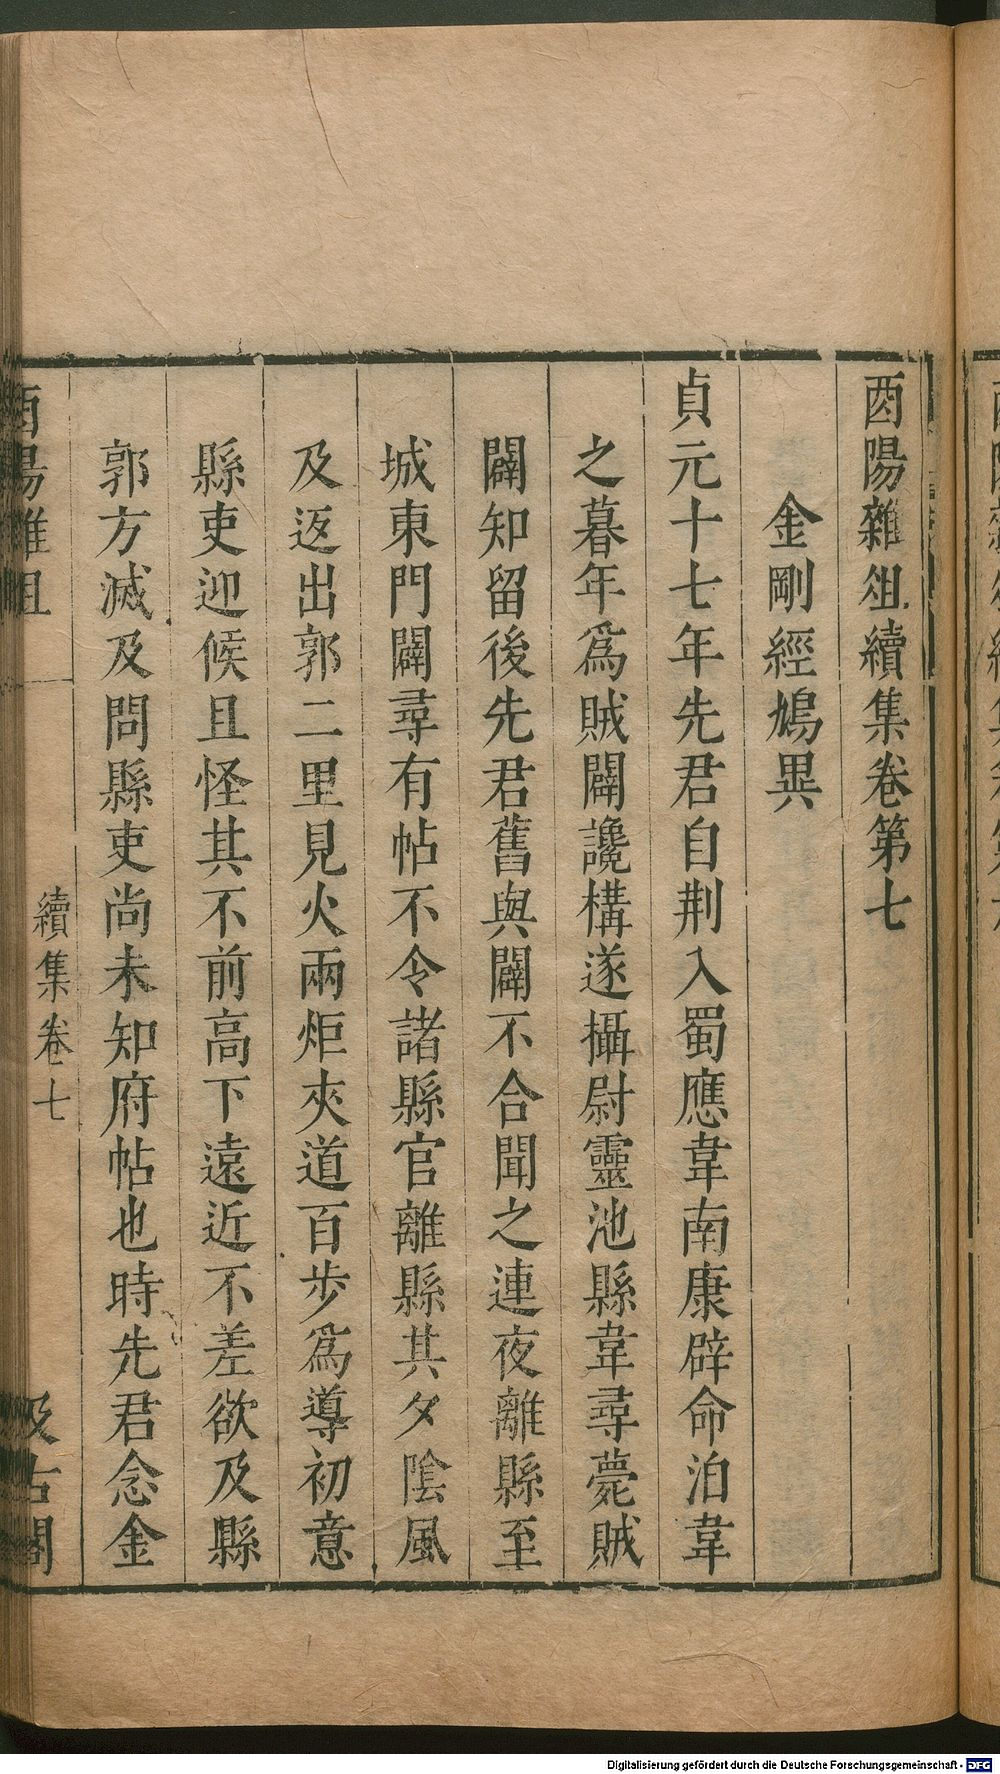 酉陽雜俎續集卷第七
金剛經鳩異
貞元十七年先君自荆入蜀應韋南康辟命泊韋
之暮年爲賊闢讒構遂攝尉靈池縣韋尋薨賊
闢知留後先君舊與闢不合聞之連夜離縣至
城東門闢尋有帖不令諸縣官離縣其夕陰風
及返出郭二里見火兩炬夾道百步爲導初意
縣吏迎候且怪其不前高下遠近不差欲及縣
郭方滅及問縣吏尚未知府帖也時先君念金
酉陽雜俎
續集卷七
汲古閣
Digitalisierung gefördert durch die Deutsche Forschungsgemeinschaft - DFG